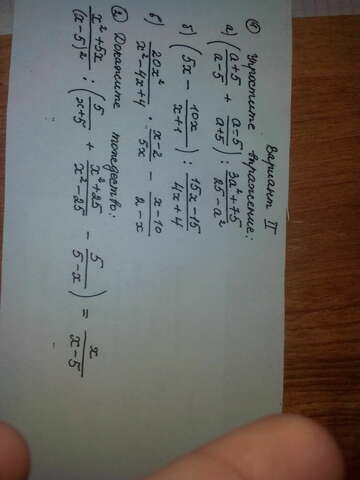 Вариант II
① Упростите выражение:
а) ((a+5)/(a-5) + (a-5)/(a+5)) : (3a²+75)/(25-a²)
б) (5x - 10x/(x+1)) : (15x-15)/(4x+4)
в) 20x²/(x²-4x+4) · (x-2)/5x - (x-10)/(2-x)
② Докажите тождество:
(x²+5x)/(x-5)² : (5/(x+5) + (x²+25)/(x²-25) - 5/(5-x)) = x/(x-5)